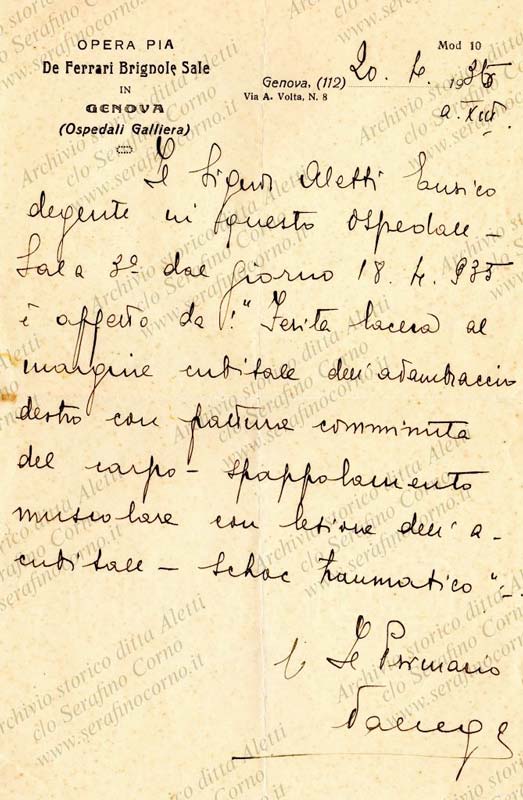 OPERA PIA
De Ferrari Brignole Sale
IN
GENOVA
(Ospedali Galliera)
Mod 10
Genova, (112) 20. 4. 1935
Via A. Volta, N. 8
a. XIII
Il Signor Aletti Enrico
degente in questo Ospedale -
Sala 3a dal giorno 18. 4. 935
è affetto da: "Ferita lacera al
margine cubitale dell'avambraccio
destro con frattura comminuta
del carpo - spappolamento
muscolare con lesione dell'a-
cubitale - Schoc traumatico" -
Il Primario
Archivio storico ditta Aletti
c/o Serafino Corno
www.serafinocorno.it